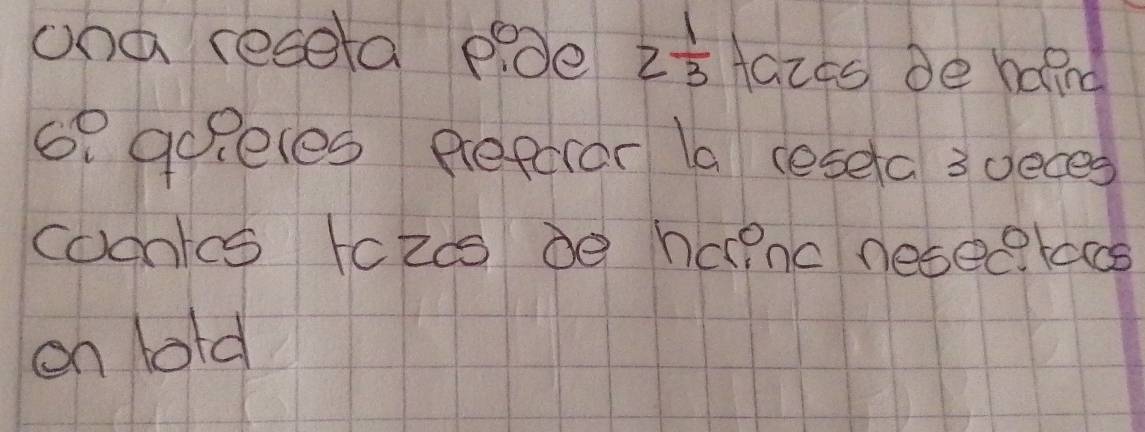 una reseta pide 2 1/3 tazas de harina
si quieres preparar la reseta 3 veces
cuantas tazas de harina nesecitaras
en total